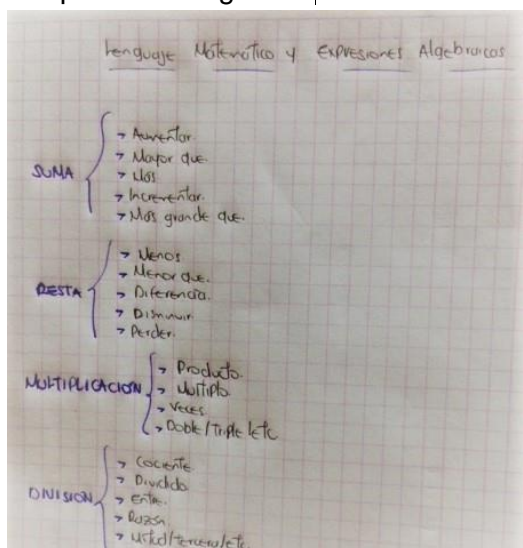 Lenguaje Matemático y Expresiones Algebraicas
SUMA
→ Aumentar.
→ Mayor que.
→ Más
→ Incrementar.
→ Más grande que.
RESTA
→ Menos
→ Menor que.
→ Diferencia.
→ Disminuir
→ Perder.
MULTIPLICACION
→ Producto.
→ Múltiplo
→ Veces
→ Doble/Triple/etc
DIVISION
→ Cociente
→ Dividido
→ Entre.
→ Razón.
→ Mitad/tercera/etc.